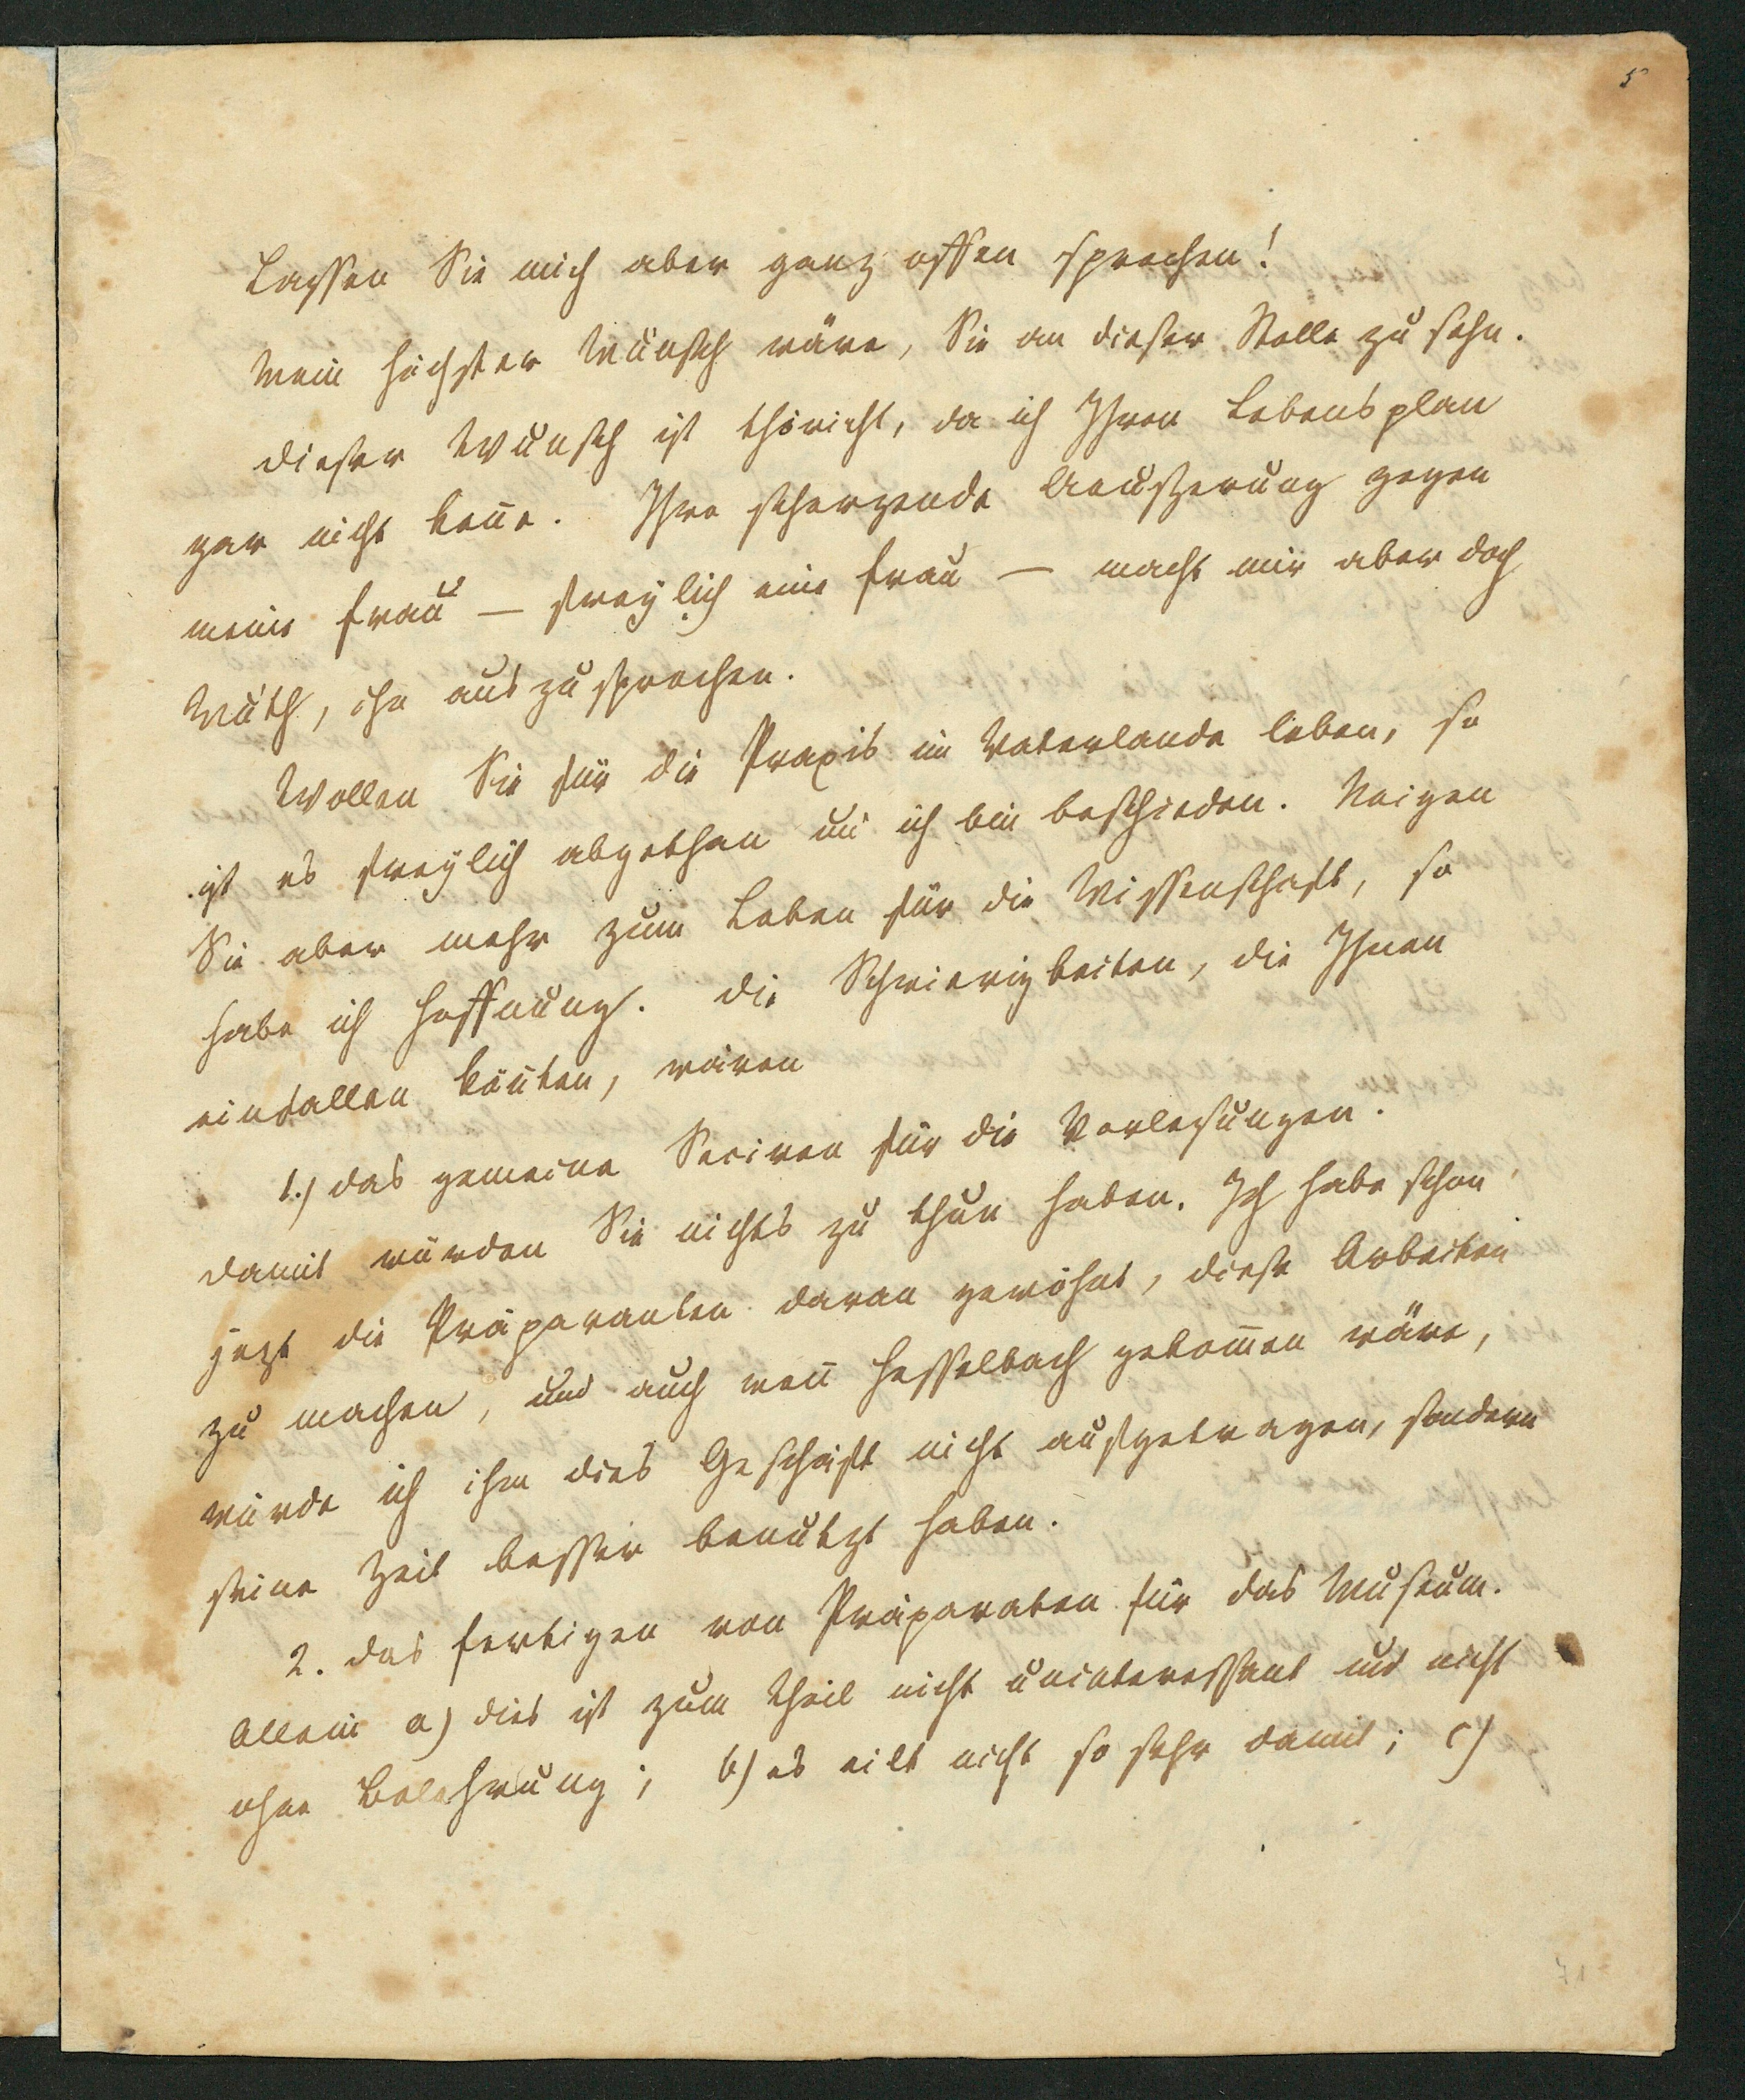 5
Lassen Sie mich aber ganz offen sprechen!
Mein höchster Wunsch wäre, Sie an dieser Stelle zu sehn.
Dieser Wunsch ist thöricht, da ich Ihren Lebensplan
gar nicht keñe. Ihre scherzende Aeußerung gegen
meine Frau — freylich eine Frau — macht mir aber doch
Muth, ihn auszusprechen.
Wollen Sie für die Praxis im Vaterlande leben, so
ist es freylich abgethan uñ ich bin beschieden. Neigen
Sie aber mehr zum Leben für die Wissenschaft, so
habe ich Hoffnung. Die Schwierigkeiten, die Ihnen
einfallen köñten, wären
1.) das gemeine Seciren für die Vorlesungen.
Damit würden Sie nichts zu thun haben. Ich habe schon
jezt die Präparanten daran gewöhnt, diese Arbeiten
zu machen, und auch weñ Hesselbach gekom̃en wäre,
würde ich ihm dies Geschäft nicht aufgetragen, sondern
seine Zeit besser benutzt haben.
2. das Fertigen von Präparaten für das Museum.
Allein a) dies ist zum Theil nicht uninteressant und nicht
ohne Belehrung; b) es eilt nicht so sehr damit; c)